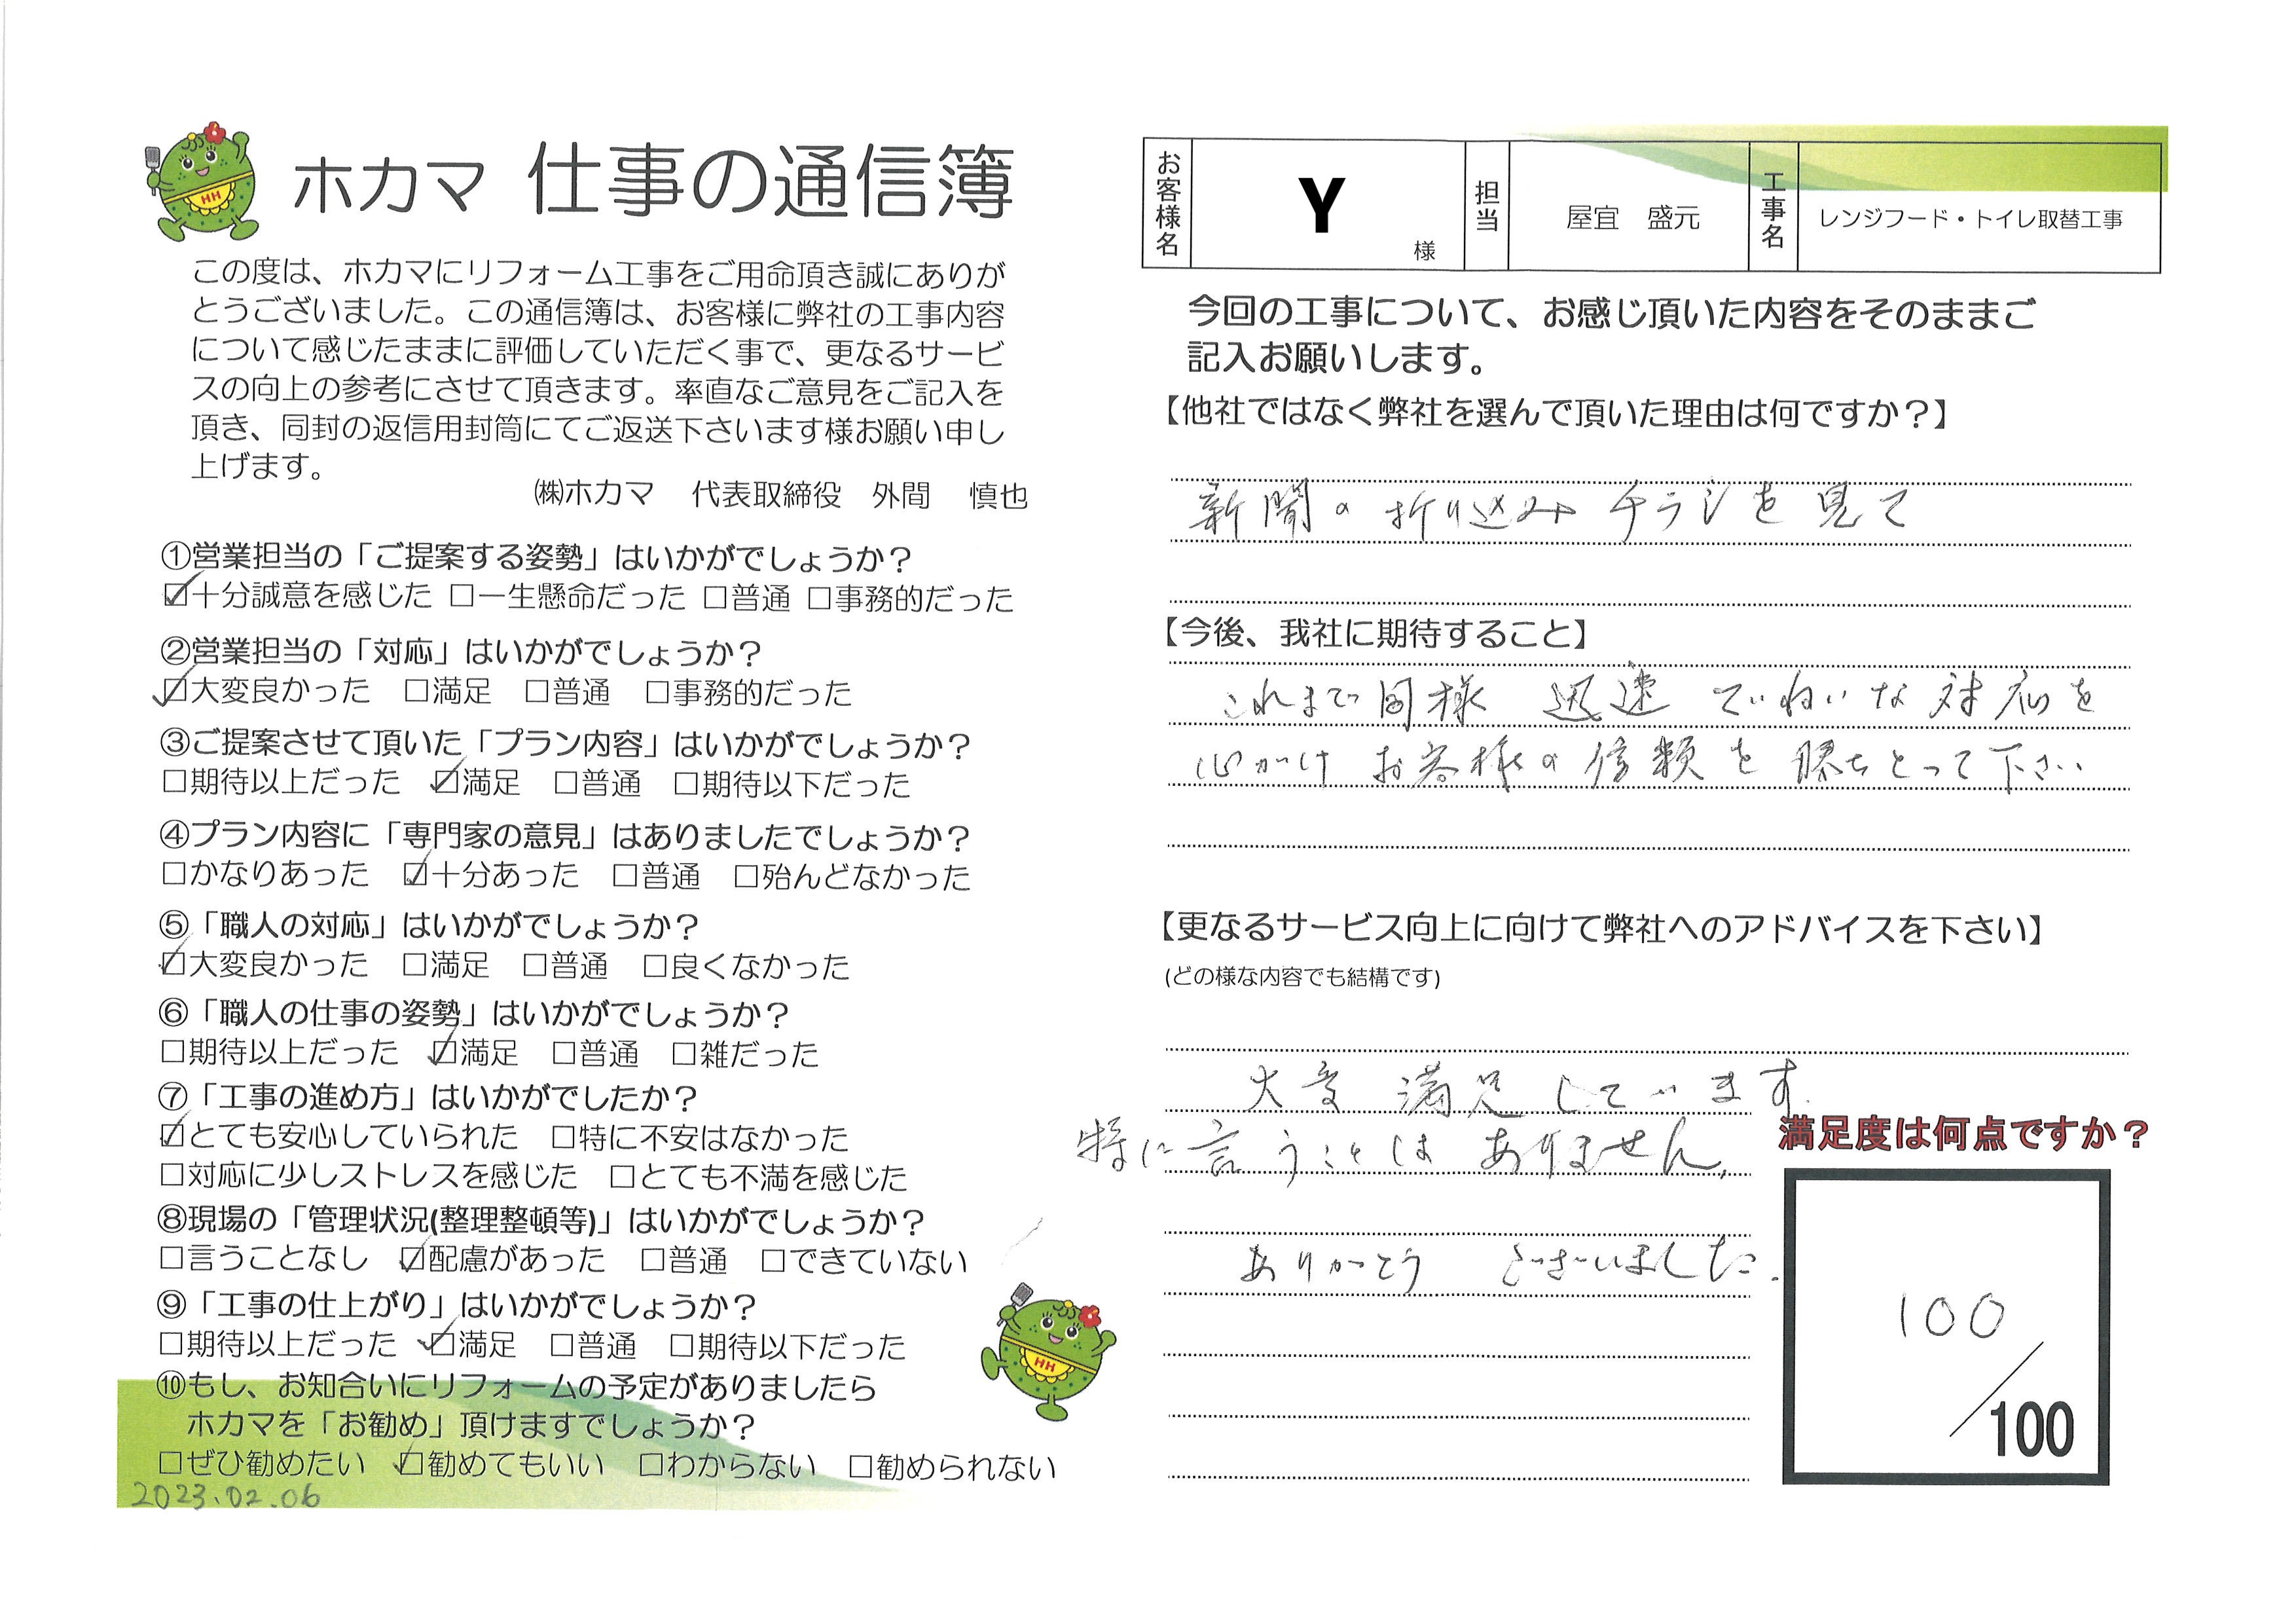 ホカマ 仕事の通信簿
この度は、ホカマにリフォーム工事をご用命頂き誠にありが
とうございました。この通信簿は、お客様に弊社の工事内容
について感じたままに評価していただく事で、更なるサービ
スの向上の参考にさせて頂きます。率直なご意見をご記入を
頂き、同封の返信用封筒にてご返送下さいます様お願い申し
上げます。
㈱ホカマ 代表取締役 外間 慎也
①営業担当の「ご提案する姿勢」はいかがでしょうか？
☑十分誠意を感じた □一生懸命だった □普通 □事務的だった
②営業担当の「対応」はいかがでしょうか？
☑大変良かった □満足 □普通 □事務的だった
③ご提案させて頂いた「プラン内容」はいかがでしょうか？
□期待以上だった ☑満足 □普通 □期待以下だった
④プラン内容に「専門家の意見」はありましたでしょうか？
□かなりあった ☑十分あった □普通 □殆んどなかった
⑤「職人の対応」はいかがでしょうか？
☑大変良かった □満足 □普通 □良くなかった
⑥「職人の仕事の姿勢」はいかがでしょうか？
□期待以上だった ☑満足 □普通 □雑だった
⑦「工事の進め方」はいかがでしたか？
☑とても安心していられた □特に不安はなかった
□対応に少しストレスを感じた □とても不満を感じた
⑧現場の「管理状況(整理整頓等)」はいかがでしょうか？
□言うことなし ☑配慮があった □普通 □できていない
⑨「工事の仕上がり」はいかがでしょうか？
□期待以上だった ☑満足 □普通 □期待以下だった
⑩もし、お知合いにリフォームの予定がありましたら
ホカマを「お勧め」頂けますでしょうか？
□ぜひ勧めたい ☑勧めてもいい □わからない □勧められない
2023.02.06
HH
HH
お客様名 Y 様 担当 屋宜 盛元 工事名 レンジフード・トイレ取替工事
今回の工事について、お感じ頂いた内容をそのままご
記入お願いします。
【他社ではなく弊社を選んで頂いた理由は何ですか？】
新聞の折り込みチラシを見て
【今後、我社に期待すること】
これまで同様 迅速 ていねいな対応を
心がけ お客様の信頼を勝ちとって下さい
【更なるサービス向上に向けて弊社へのアドバイスを下さい】
(どの様な内容でも結構です)
大変 満足しています。
特に言うことは ありません。
ありがとう ございました。
満足度は何点ですか？
100/100